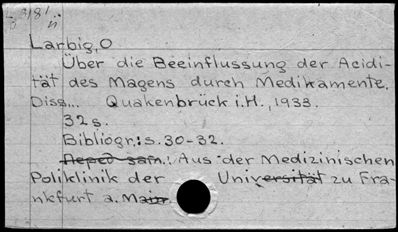 Larbig, O
Über die Beeinflussung der Acidi-
tät des Magens durch Medikamente.
Diss... Quakenbrück i.H., 1933.
32s.
Bibliogr.: s. 30-32.
Перед загл.: Aus der Medizinischen
Poliklinik der Universität zu Fra-
nkfurt a. Main